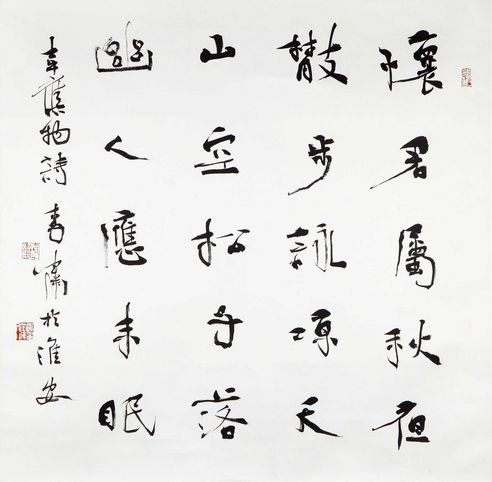 懷君屬秋夜
散步詠凉天
山空松子落
幽人應未眠
韋應物詩 青嘯於淮安